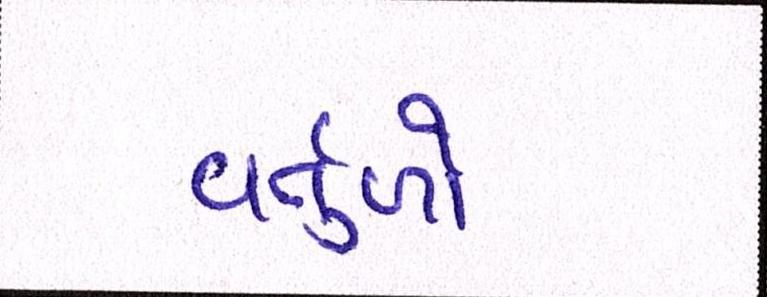 વર્તુળો